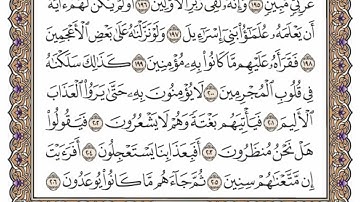 عَرَبِيٍّ مُّبِينٍ ١٩٥ وَإِنَّهُۥ لَفِى زُبُرِ ٱلْأَوَّلِينَ ١٩٦ أَوَلَمْ يَكُن لَّهُمْ ءَايَةً
أَن يَعْلَمَهُۥ عُلَمَٰٓؤُا۟ بَنِىٓ إِسْرَٰٓءِيلَ ١٩٧ وَلَوْ نَزَّلْنَٰهُ عَلَىٰ بَعْضِ ٱلْأَعْجَمِينَ
١٩٨ فَقَرَأَهُۥ عَلَيْهِم مَّا كَانُوا۟ بِهِۦ مُؤْمِنِينَ ١٩٩ كَذَٰلِكَ سَلَكْنَٰهُ
فِى قُلُوبِ ٱلْمُجْرِمِينَ ٢٠٠ لَا يُؤْمِنُونَ بِهِۦ حَتَّىٰ يَرَوُا۟ ٱلْعَذَابَ
ٱلْأَلِيمَ ٢٠١ فَيَأْتِيَهُم بَغْتَةً وَهُمْ لَا يَشْعُرُونَ ٢٠٢ فَيَقُولُوا۟
هَلْ نَحْنُ مُنظَرُونَ ٢٠٣ أَفَبِعَذَابِنَا يَسْتَعْجِلُونَ ٢٠٤ أَفَرَءَيْتَ
إِن مَّتَّعْنَٰهُمْ سِنِينَ ٢٠٥ ثُمَّ جَآءَهُم مَّا كَانُوا۟ يُوعَدُونَ ٢٠٦